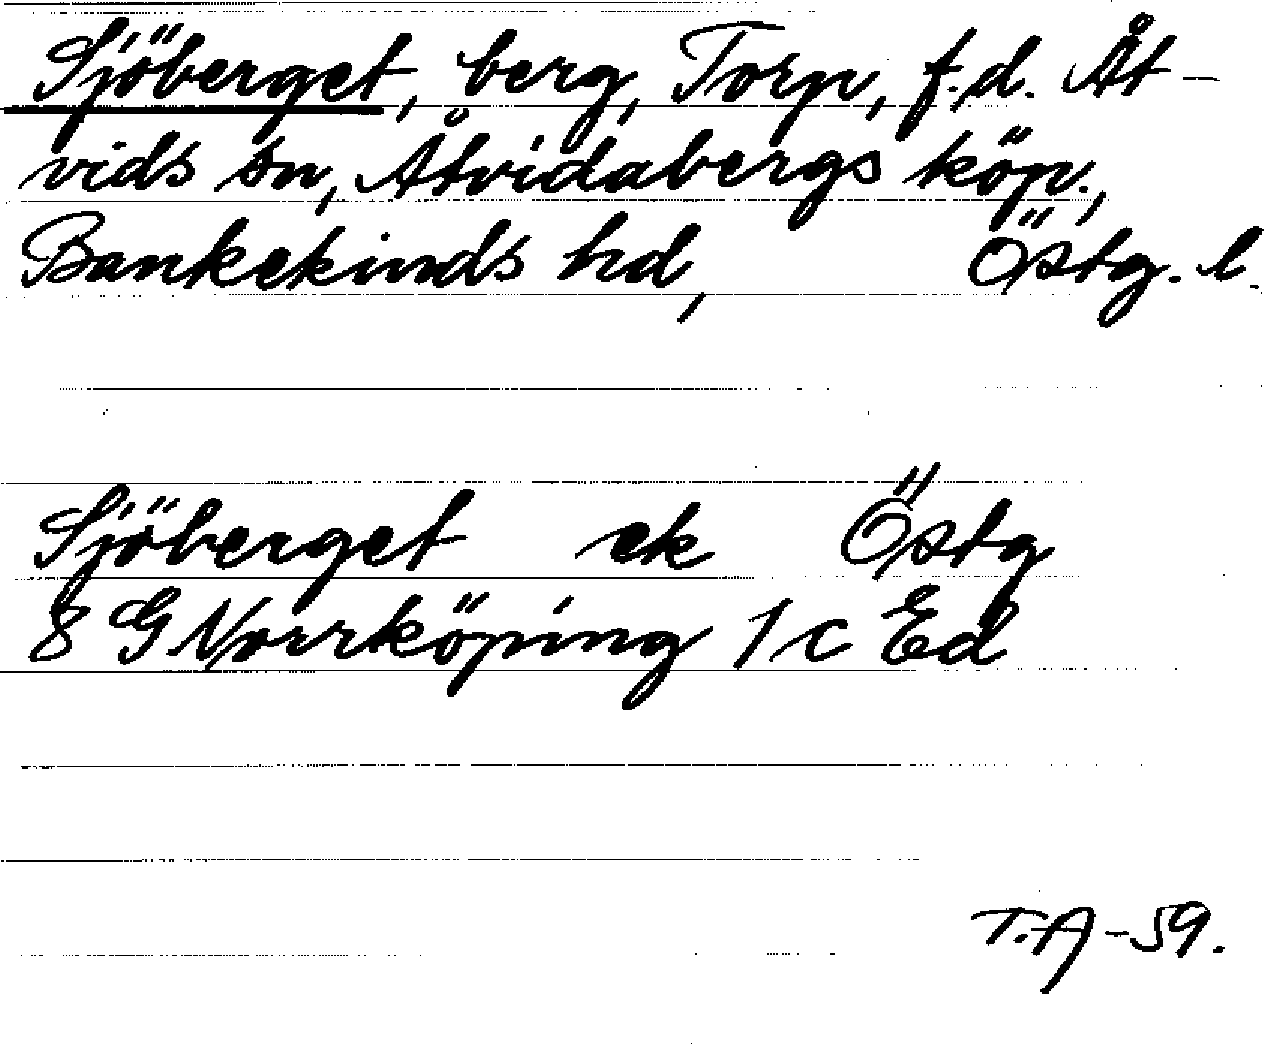 Sjöberget, berg, Torp, f.d. Åt-
vids sn, Åtvidabergs köp.,
Bankekinds hd, Östg. l.
Sjöberget ek Östg
8 G Norrköping 1 c Ed
T.A-59.